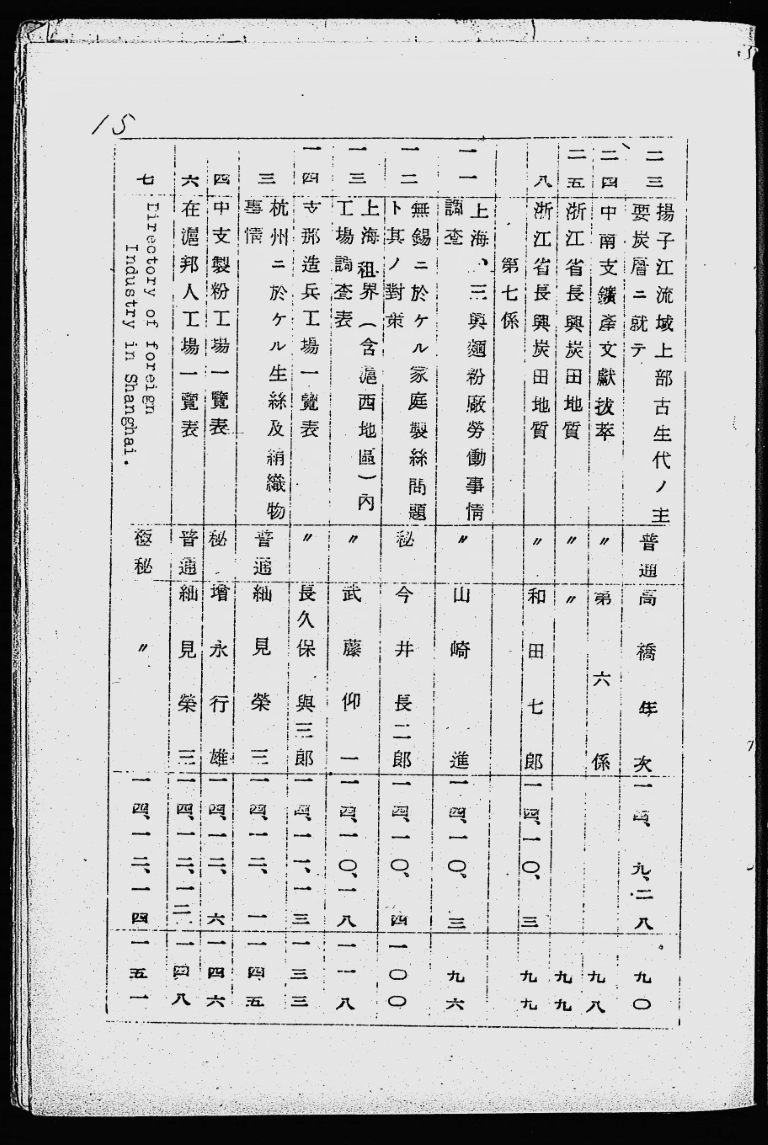 15
二三 揚子江流域上部古生代ノ主
要炭層ニ就テ 普通 高橋年次 一四、九、二八 九〇
二四 中南支鑛產文獻拔萃 〃 第六係 九八
二五 浙江省長興炭田地質 〃 〃 九九
八 浙江省長興炭田地質 〃 和田七郎 一四、一〇、三 九九
第七係
一一 上海、三興麵粉廠勞働事情
調查 〃 山崎進 一四、一〇、三 九六
一二 無錫ニ於ケル家庭製絲問題
ト其ノ對策 秘 今井長二郎 一四、一〇、四 一〇〇
一三 上海租界(含滬西地區)內
工場調查表 〃 武藤仰一 一四、一〇、一八 一一八
一四 支那造兵工場一覽表 〃 長久保與三郎 一四、一一、一三 一三三
三 杭州ニ於ケル生絲及絹織物
事情 普通 紬見榮三 一四、一二、一 一四五
四 中支製粉工場一覽表 秘 增永行雄 一四、一二、六 一四六
六 在滬邦人工場一覽表 普通 紬見榮三 一四、一二、一二 一四八
七 Directory of foreign
Industry in Shanghai. 極秘 〃 一四、一二、一四 一五一